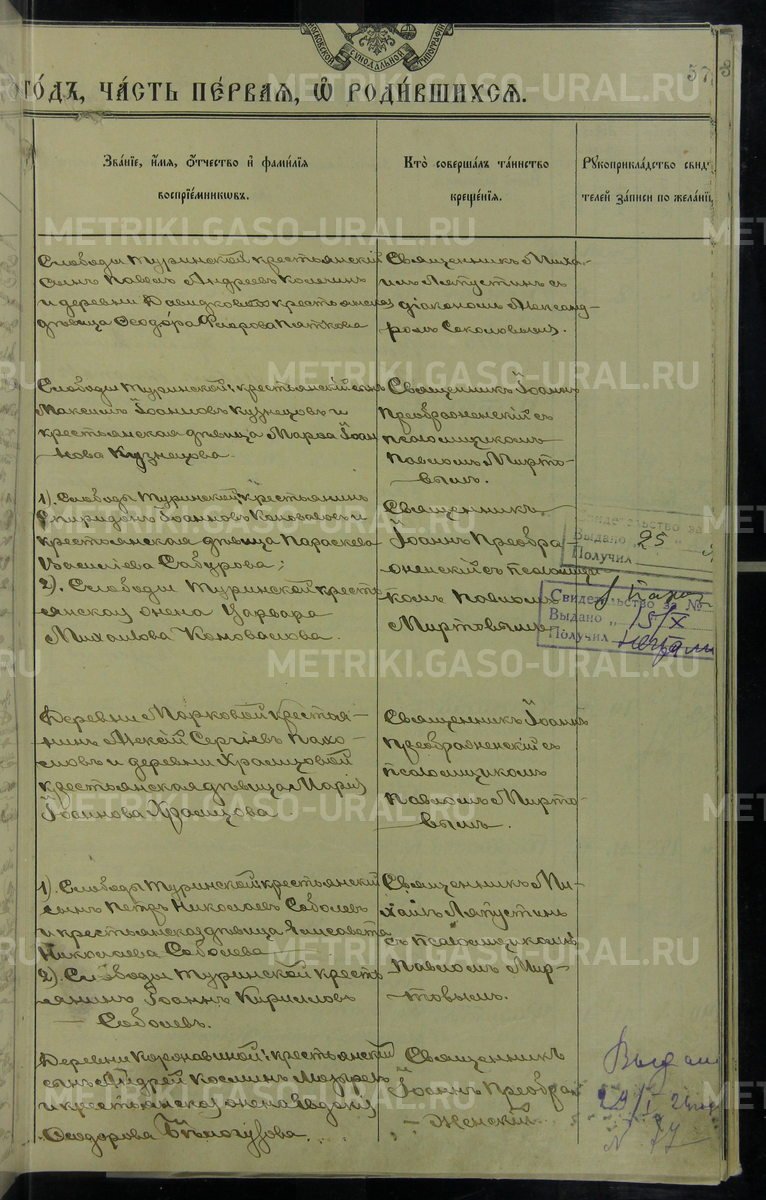 МОСКОВСКОЙ СУНОДАЛЬНОЙ ТИПОГРАФІИ
57
ГО́ДЪ, ЧА́СТЬ ПЕ́РВАЯ, Ѡ҆ РОДИ́ВШИХСЯ.
Зва́нїе, и҆́мя, ѻ҆́тчество и҆ фами́лїя
воспрїе́мникѡвъ.
Кто̀ соверша́лъ та́инство
креще́нїя.
Рꙋкоприкла́дство свид
телей за́писи по жела́нїю
METRIKI.GASO-URAL.RU
Слободы Туринской крестьянскій
сынъ Павелъ Андреевъ
и деревни Давидковой крестьянская
дѣвица Ѳеодора Пяткова
Священникъ Миха-
илъ Ляпустинъ съ
діакономъ Александ-
ромъ Соколовымъ.
Слободы Туринской: крестьянскій сынъ
Максимъ Іоанновъ Кузнецовъ и
крестьянская дѣвица Марѳа Іоан
нова Кузнецова.
Священникъ Іоаннъ
Преображенскій съ
псаломщикомъ
Павломъ Мирто-
вымъ.
1). Слободы Туринской: крестьянинъ
Спиридонъ Іоанновъ Коноваловъ и
крестьянская дѣвица Параскева
Васильева Сабурова;
2). Слободы Туринской крестьянская жена Варвара
Михайлова Коновалова.
Священникъ
Іоаннъ Преобра-
женскій съ псаломщи
комъ Павломъ
Миртовымъ
Свидетельство за
Выдано " 25 "
Получил
Свидетельство за №
Выдано " 15/X
Получил
Деревни Марковой крестья-
нинъ Алексій Сергіевъ Пахо-
мовъ и деревни Храмцовой
крестьянская дѣвица Марія
Іоаннова Храмцова
Священникъ Іоаннъ
Преображенскій съ
псаломщикомъ
Павломъ Мирто-
вымъ.
1). Слободы Туринской: крестьянскій
сынъ Петръ Николаевъ Соболевъ
и крестьянская дѣвица Елисавета
Николаева Соболева
2). Слободы Туринской кресть
янинъ Іоаннъ Кирилловъ
Соболевъ.
Священникъ Ми-
хаилъ Ляпустинъ
съ псаломщикомъ
Павломъ Мир-
товымъ.
Деревни Коноваловой: крестьянскій
сынъ Андрей Косминъ
и крестьянская жена Евдокія
Ѳеодорова
Священникъ
Іоаннъ Преобра
женскій
Выдан
29/I
№